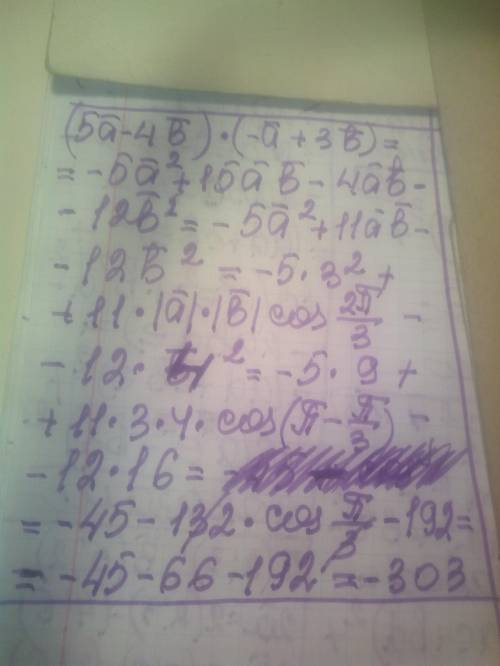 (5a̅ - 4b̅) · (-a̅ + 3b̅) =
= -5a̅² + 15a̅ b̅ - 4a̅b̅ -
- 12b̅² = -5a̅² + 11a̅b̅ -
- 12b̅² = -5·3² +
+ 11·|a̅|·|b̅| cos 2π/3 -
- 12·4² = -5·9 +
+ 11·3·4·cos(π - π/3) -
- 12·16 =
= -45 - 132·cos π/3 - 192 =
= -45 - 66 - 192 = -303